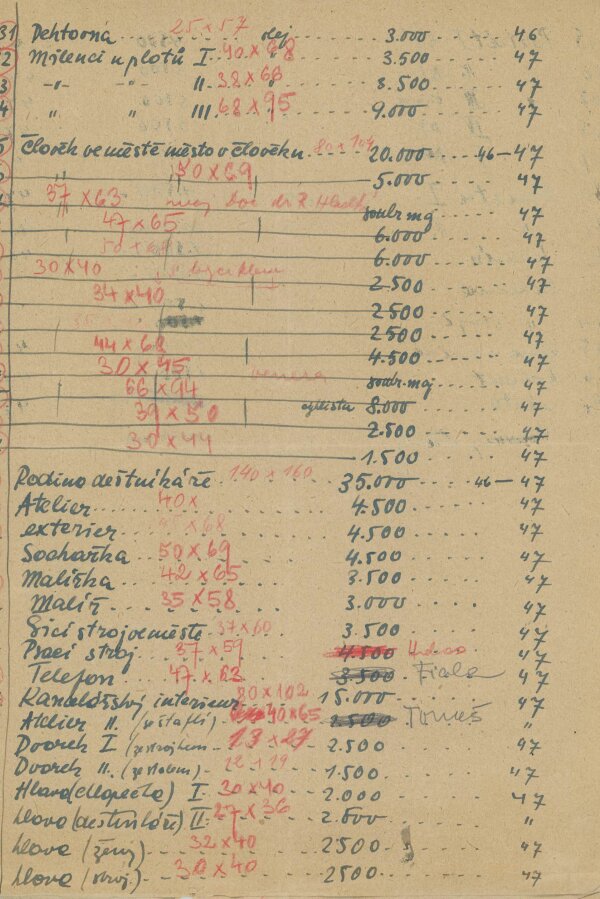 31 Dehtovna 25 x 57 olej 3.000 46
2 Milenci u plotů I 40 x 98 3.500 47
3 -"- -"- II 38 x 66 3.500 47
4 " " III 68 x 95 9.000 47
5 Člověk ve městě město v člověku 20.000 46-47
" 50 x 69 5.000 47
37 x 63 soukr. maj 47
47 x 65 6.000 47
6.000 47
30 x 40 2 500 47
34 x 40
2500 47
2500 47
44 x 68 4.500 47
30 x 45
66 x 94 soukr. maj 47
39 x 50 8.000 47
2.500 47
30 x 44 1.500 47
Rodina deštníkáře 140 x 160 35.000 46-47
Atelier 40 x 4.500 47
exterier 4.500 47
Sochařka 50 x 69 4.500 47
Malířka 42 x 65 3.500 47
Malíř 35 x 58 3.000 47
Šicí stroj ve městě 37 x 60 3.500 47
Prací stroj 37 x 59 4.500 47
Telefon 47 x 63 3.500 Fiala 47
Kanalářský interieur 80 x 102 15.000 47
Atelier II. (se štaflí) 40 x 65 2.500 Tomeš "
Dvorek I (se strojkem 2.500 47
Dvorek II. 1.500 47
Hlava I 30 x 40 2.000 47
hlava (deštníkáře) II 27 x 36 2.500 "
hlava (ženy) 32 x 40 2500 47
hlava (stroj.) 30 x 40 2500 47